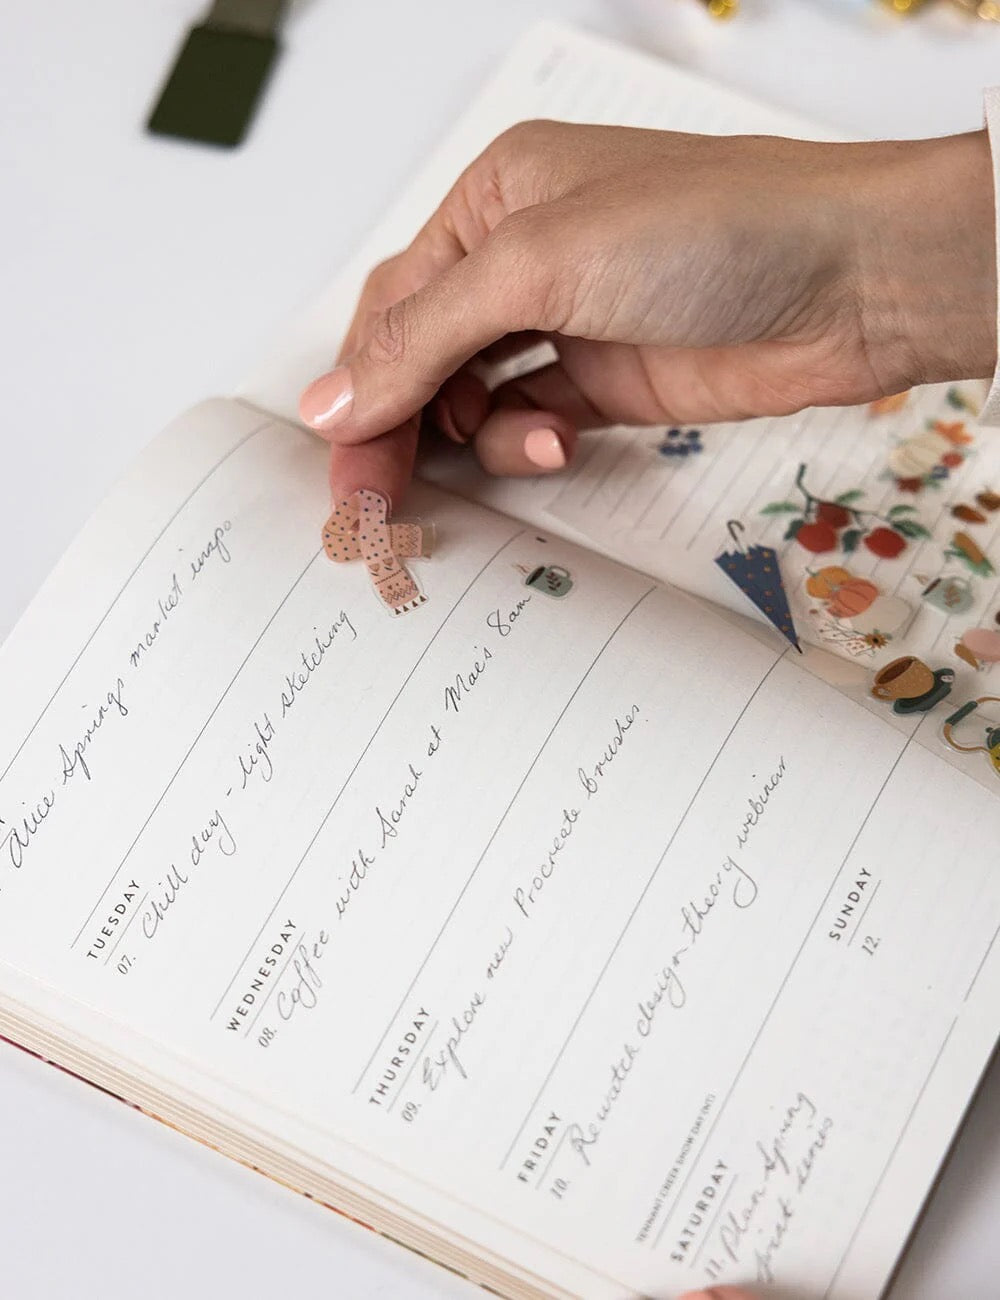 Alice Springs market inspo
TUESDAY
07.
Chill day - light sketching
WEDNESDAY
08.
Coffee with Sarah at Mae's 8am
THURSDAY
09.
Explore new Procreate brushes
FRIDAY
10.
Rewatch design theory webinar
TENNANT CREEK SHOW DAY (NT)
SATURDAY
11.
Plan Spring
print series
SUNDAY
12.